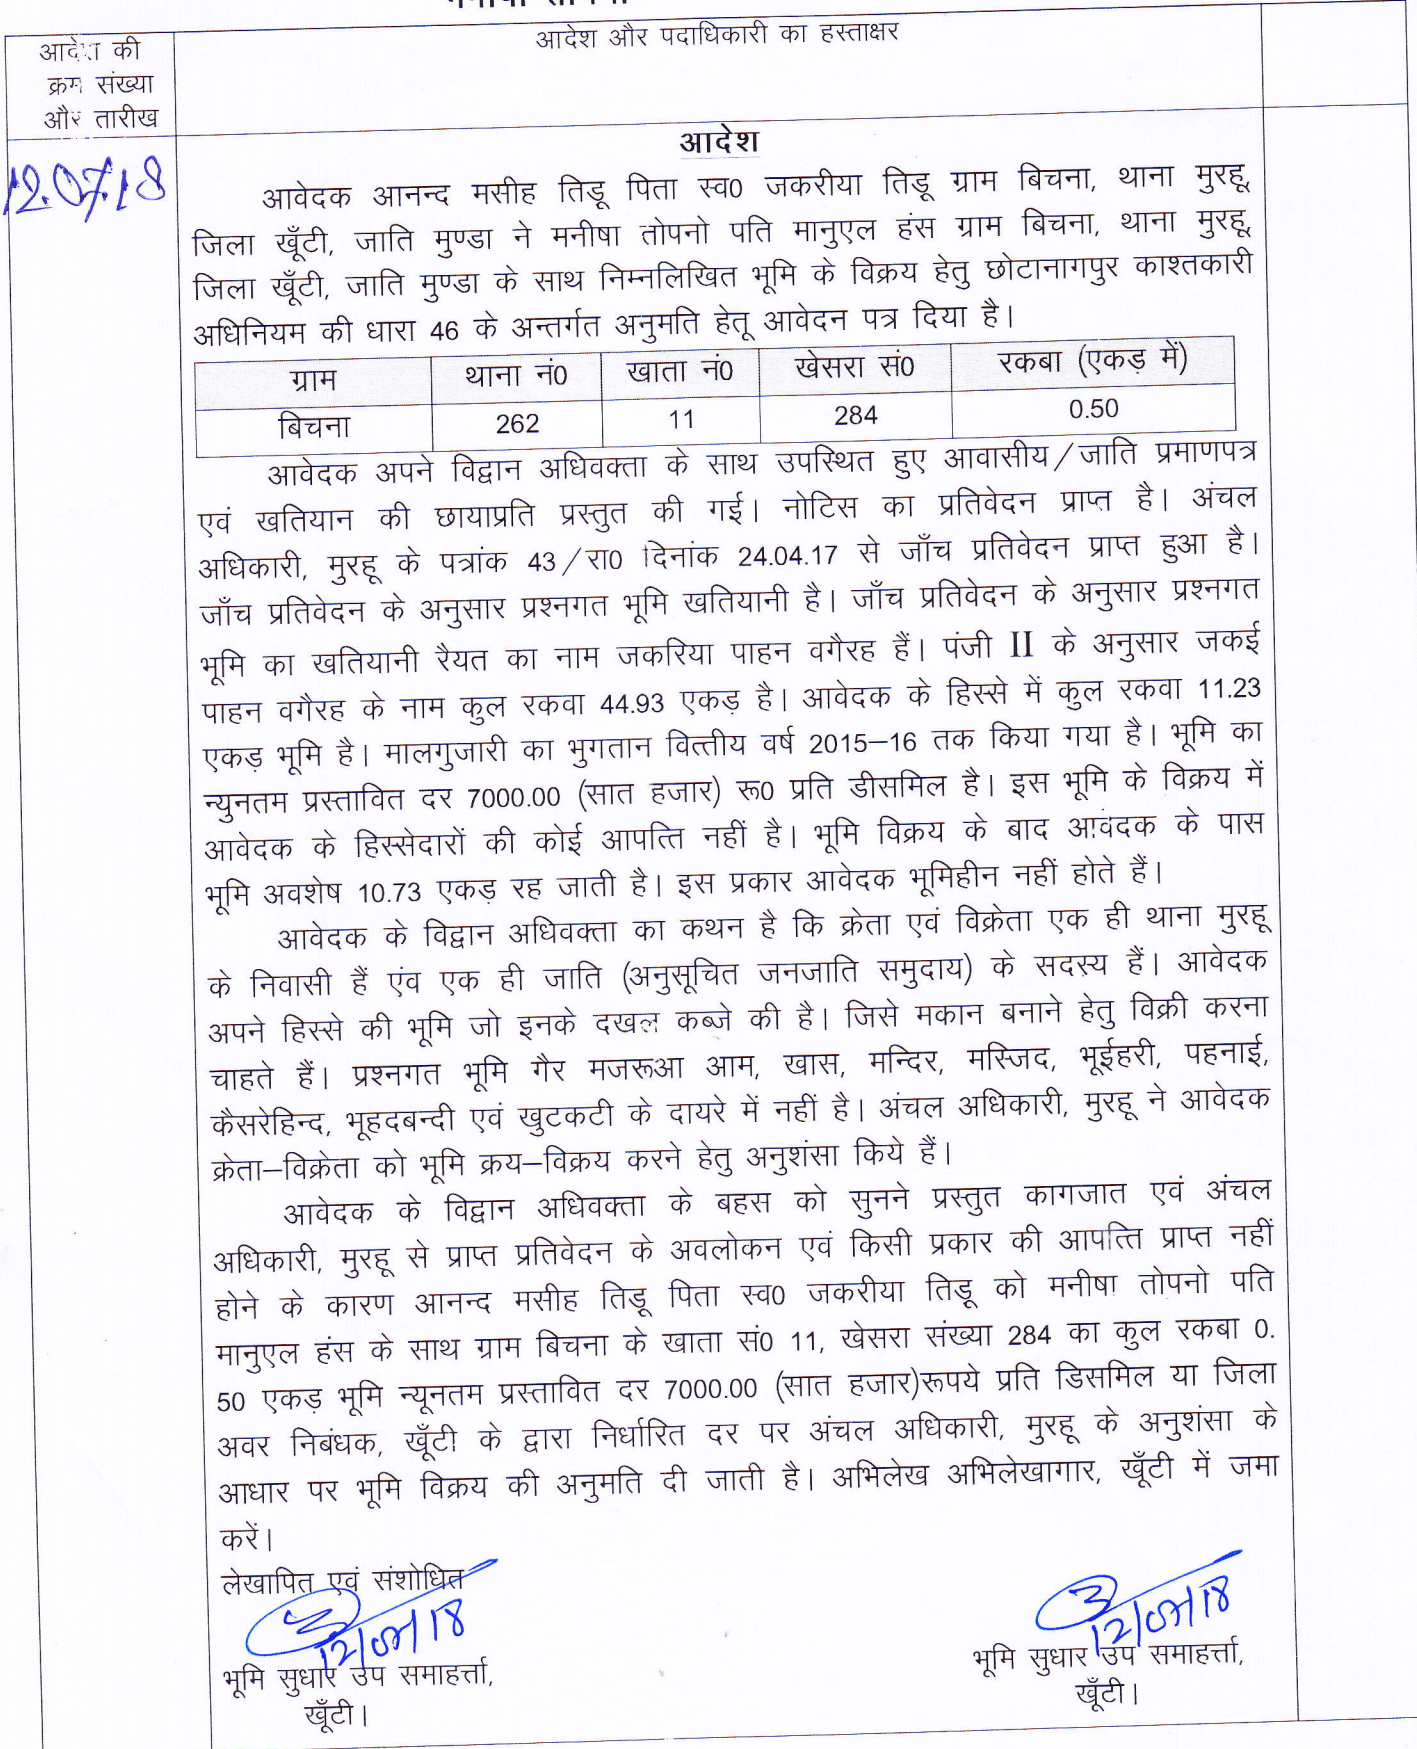 आदेश की
क्रम संख्या
और तारीख
आदेश और पदाधिकारी का हस्ताक्षर
12.07.18
आदेश
आवेदक आनन्द मसीह तिडू पिता स्व0 जकरीया तिडू ग्राम बिचना, थाना मुरहू,
जिला खूँटी, जाति मुण्डा ने मनीषा तोपनो पति मानुएल हंस ग्राम बिचना, थाना मुरहू,
जिला खूँटी, जाति मुण्डा के साथ निम्नलिखित भूमि के विक्रय हेतु छोटानागपुर काश्तकारी
अधिनियम की धारा 46 के अन्तर्गत अनुमति हेतू आवेदन पत्र दिया है।
ग्राम थाना नं0 खाता नं0 खेसरा सं0 रकबा (एकड़ में)
बिचना 262 11 284 0.50
आवेदक अपने विद्वान अधिवक्ता के साथ उपस्थित हुए आवासीय/जाति प्रमाणपत्र
एवं खतियान की छायाप्रति प्रस्तुत की गई। नोटिस का प्रतिवेदन प्राप्त है। अंचल
अधिकारी, मुरहू के पत्रांक 43/रा0 दिनांक 24.04.17 से जाँच प्रतिवेदन प्राप्त हुआ है।
जाँच प्रतिवेदन के अनुसार प्रश्नगत भूमि खतियानी है। जाँच प्रतिवेदन के अनुसार प्रश्नगत
भूमि का खतियानी रैयत का नाम जकरिया पाहन वगैरह हैं। पंजी II के अनुसार जकई
पाहन वगैरह के नाम कुल रकवा 44.93 एकड़ है। आवेदक के हिस्से में कुल रकवा 11.23
एकड़ भूमि है। मालगुजारी का भुगतान वित्तीय वर्ष 2015–16 तक किया गया है। भूमि का
न्युनतम प्रस्तावित दर 7000.00 (सात हजार) रू0 प्रति डीसमिल है। इस भूमि के विक्रय में
आवेदक के हिस्सेदारों की कोई आपत्ति नहीं है। भूमि विक्रय के बाद आवेदक के पास
भूमि अवशेष 10.73 एकड़ रह जाती है। इस प्रकार आवेदक भूमिहीन नहीं होते हैं।
आवेदक के विद्वान अधिवक्ता का कथन है कि क्रेता एवं विक्रेता एक ही थाना मुरहू
के निवासी हैं एंव एक ही जाति (अनुसूचित जनजाति समुदाय) के सदस्य हैं। आवेदक
अपने हिस्से की भूमि जो इनके दखल कब्जे की है। जिसे मकान बनाने हेतु विक्री करना
चाहते हैं। प्रश्नगत भूमि गैर मजरूआ आम, खास, मन्दिर, मस्जिद, भूईहरी, पहनाई,
कैसरेहिन्द, भूहदबन्दी एवं खुटकटी के दायरे में नहीं है। अंचल अधिकारी, मुरहू ने आवेदक
क्रेता–विक्रेता को भूमि क्रय–विक्रय करने हेतु अनुशंसा किये हैं।
आवेदक के विद्वान अधिवक्ता के बहस को सुनने प्रस्तुत कागजात एवं अंचल
अधिकारी, मुरहू से प्राप्त प्रतिवेदन के अवलोकन एवं किसी प्रकार की आपत्ति प्राप्त नहीं
होने के कारण आनन्द मसीह तिडू पिता स्व0 जकरीया तिडू को मनीषा तोपनो पति
मानुएल हंस के साथ ग्राम बिचना के खाता सं0 11, खेसरा संख्या 284 का कुल रकबा 0.
50 एकड़ भूमि न्यूनतम प्रस्तावित दर 7000.00 (सात हजार)रूपये प्रति डिसमिल या जिला
अवर निबंधक, खूँटी के द्वारा निर्धारित दर पर अंचल अधिकारी, मुरहू के अनुशंसा के
आधार पर भूमि विक्रय की अनुमति दी जाती है। अभिलेख अभिलेखागार, खूँटी में जमा
करें।
लेखापित एवं संशोधित
12/07/18 12/07/18
भूमि सुधार उप समाहर्त्ता, भूमि सुधार उप समाहर्त्ता,
खूँटी। खूँटी।